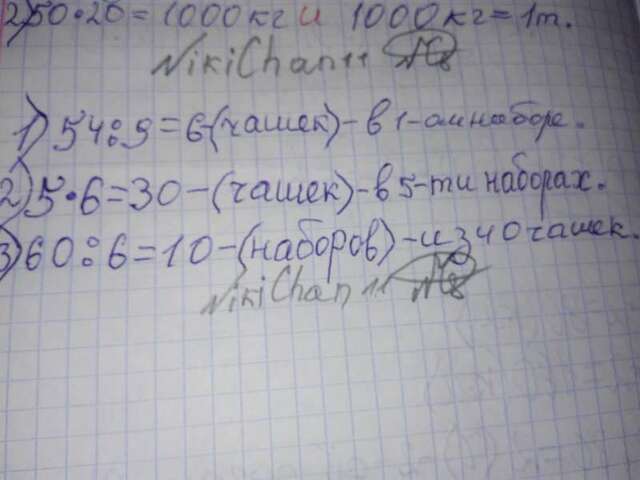 2) 50 · 20 = 1000 кг и 1000 кг = 1т.
NikiChan11
1) 54 : 9 = 6 (чашек) - в 1-ом наборе.
2) 5 · 6 = 30 - (чашек) - в 5-ти наборах.
3) 60 : 6 = 10 - (наборов) - из 40 чашек.
NikiChan11